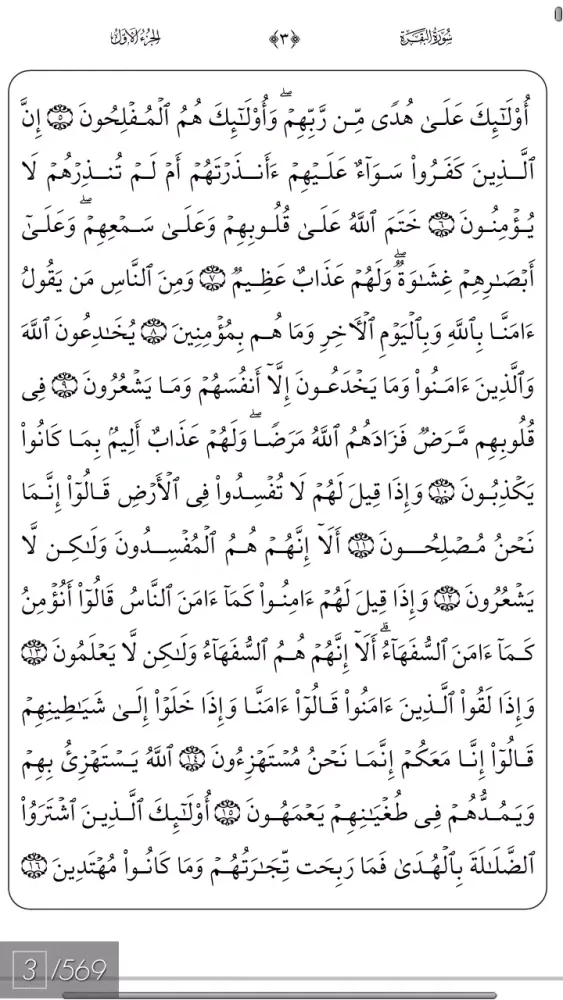 سُورَةُ البَقَرَةِ ﴿٣﴾ الجُزءُ الأوّلُ
أُوْلَـٰٓئِكَ عَلَىٰ هُدًى مِّن رَّبِّهِمْ ۖ وَأُوْلَـٰٓئِكَ هُمُ ٱلْمُفْلِحُونَ ٥ إِنَّ
ٱلَّذِينَ كَفَرُوا۟ سَوَآءٌ عَلَيْهِمْ ءَأَنذَرْتَهُمْ أَمْ لَمْ تُنذِرْهُمْ لَا
يُؤْمِنُونَ ٦ خَتَمَ ٱللَّهُ عَلَىٰ قُلُوبِهِمْ وَعَلَىٰ سَمْعِهِمْ ۖ وَعَلَىٰٓ
أَبْصَـٰرِهِمْ غِشَـٰوَةٌ ۖ وَلَهُمْ عَذَابٌ عَظِيمٌ ٧ وَمِنَ ٱلنَّاسِ مَن يَقُولُ
ءَامَنَّا بِٱللَّهِ وَبِٱلْيَوْمِ ٱلْـَٔاخِرِ وَمَا هُم بِمُؤْمِنِينَ ٨ يُخَـٰدِعُونَ ٱللَّهَ
وَٱلَّذِينَ ءَامَنُوا۟ وَمَا يَخْدَعُونَ إِلَّآ أَنفُسَهُمْ وَمَا يَشْعُرُونَ ٩ فِى
قُلُوبِهِم مَّرَضٌ فَزَادَهُمُ ٱللَّهُ مَرَضًا ۖ وَلَهُمْ عَذَابٌ أَلِيمٌۢ بِمَا كَانُوا۟
يَكْذِبُونَ ١٠ وَإِذَا قِيلَ لَهُمْ لَا تُفْسِدُوا۟ فِى ٱلْأَرْضِ قَالُوٓا۟ إِنَّمَا
نَحْنُ مُصْلِحُونَ ١١ أَلَآ إِنَّهُمْ هُمُ ٱلْمُفْسِدُونَ وَلَـٰكِن لَّا
يَشْعُرُونَ ١٢ وَإِذَا قِيلَ لَهُمْ ءَامِنُوا۟ كَمَآ ءَامَنَ ٱلنَّاسُ قَالُوٓا۟ أَنُؤْمِنُ
كَمَآ ءَامَنَ ٱلسُّفَهَآءُ ۗ أَلَآ إِنَّهُمْ هُمُ ٱلسُّفَهَآءُ وَلَـٰكِن لَّا يَعْلَمُونَ ١٣
وَإِذَا لَقُوا۟ ٱلَّذِينَ ءَامَنُوا۟ قَالُوٓا۟ ءَامَنَّا وَإِذَا خَلَوْا۟ إِلَىٰ شَيَـٰطِينِهِمْ
قَالُوٓا۟ إِنَّا مَعَكُمْ إِنَّمَا نَحْنُ مُسْتَهْزِءُونَ ١٤ ٱللَّهُ يَسْتَهْزِئُ بِهِمْ
وَيَمُدُّهُمْ فِى طُغْيَـٰنِهِمْ يَعْمَهُونَ ١٥ أُوْلَـٰٓئِكَ ٱلَّذِينَ ٱشْتَرَوُا۟
ٱلضَّلَـٰلَةَ بِٱلْهُدَىٰ فَمَا رَبِحَت تِّجَـٰرَتُهُمْ وَمَا كَانُوا۟ مُهْتَدِينَ ١٦
3 /569